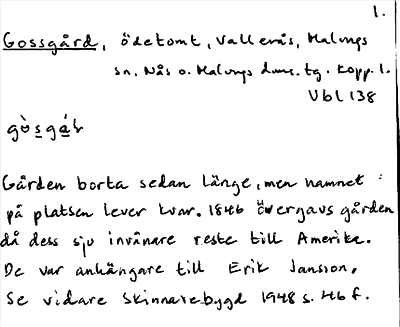 1.
Gossgård, ödetomt, Vallerås, Malungs
sn, Nås o. Malungs doms. tg. Kopp. l.
Vbl 138
Gården borta sedan länge, men namnet
på platsen lever kvar. 1846 övergavs gården
då dess sju invånare reste till Amerika.
De var anhängare till Erik Jansson.
Se vidare Skinnarebygd 1948 s. 46 f.